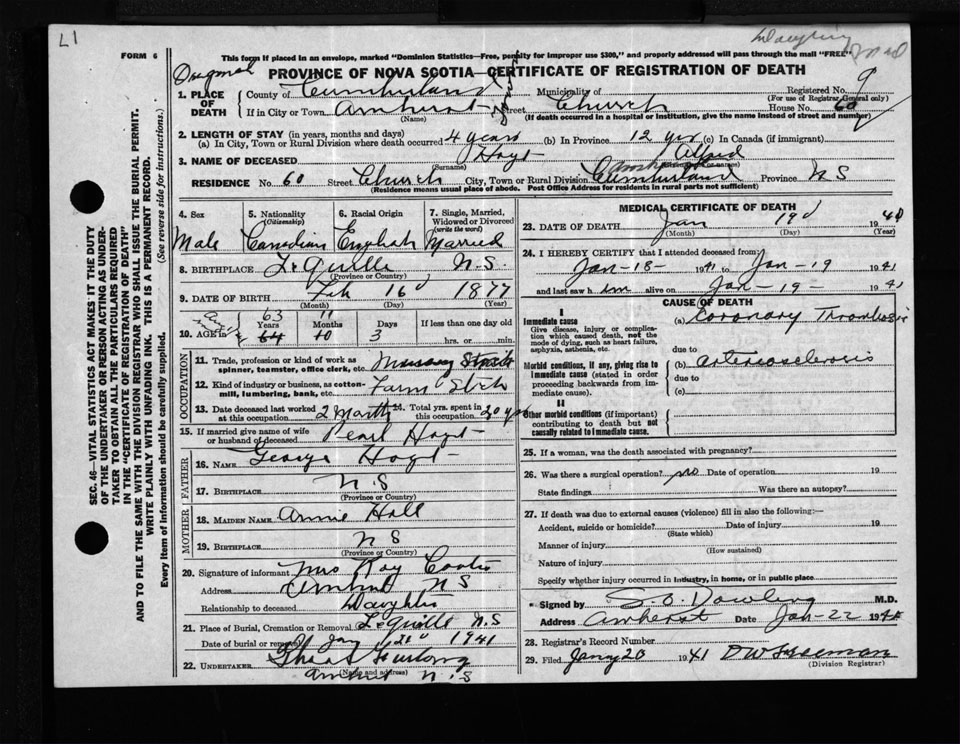 L1
Daughter
FORM 6
This form if placed in an envelope, marked "Dominion Statistics—Free, penalty for improper use $300," and properly addressed will pass through the mail "FREE"
PROVINCE OF NOVA SCOTIA—CERTIFICATE OF REGISTRATION OF DEATH
1. PLACE OF DEATH
County of Cumberland Municipality of Registered No. 9
(For use of Registrar General only)
If in City or Town Amherst Street Church House No. 60
(Name) (If death occurred in a hospital or institution, give the name instead of street and number)
2. LENGTH OF STAY (in years, months and days)
(a) In City, Town or Rural Division where death occurred 4 years (b) In Province 12 yrs (c) In Canada (if immigrant)
3. NAME OF DECEASED Hoyt Alfred
(Surname)
RESIDENCE No. 60 Street Church City, Town or Rural Division Cumberland Province N S
(Residence means usual place of abode. Post Office Address for residents in rural parts not sufficient)
4. Sex Male
5. Nationality (Citizenship) Canadian
6. Racial Origin English
7. Single, Married, Widowed or Divorced (write the word) Married
8. BIRTHPLACE LeQuille N.S.
(Province or Country)
9. DATE OF BIRTH Feb 16 1877
(Month) (Day) (Year)
63 11
10. AGE in Years 64 Months 10 Days 3 If less than one day old hrs. or min.
OCCUPATION
11. Trade, profession or kind of work as spinner, teamster, office clerk, etc.
12. Kind of industry or business, as cotton-mill, lumbering, bank, etc.
13. Date deceased last worked at this occupation 2 Months 14. Total yrs. spent in this occupation 20 yrs
15. If married give name of wife or husband of deceased Pearl Hoyt
FATHER
16. NAME George Hoyt
17. BIRTHPLACE N.S
(Province or Country)
MOTHER
18. MAIDEN NAME Annie Hall
19. BIRTHPLACE N S
(Province or Country)
20. Signature of informant Mrs Ray
Address Amherst N S
Relationship to deceased Daughter
21. Place of Burial, Cremation or Removal LeQuille N.S
Date of burial or removal Jany 21 1941
22. UNDERTAKER Furlong
(Name and address)
Amherst N.S
MEDICAL CERTIFICATE OF DEATH
23. DATE OF DEATH Jan 19 1941
(Month) (Day) (Year)
24. I HEREBY CERTIFY that I attended deceased from
Jan-18- 1941 to Jan-19 1941
and last saw h im alive on Jan-19- 1941
CAUSE OF DEATH
I
Immediate cause
Give disease, injury or complication which caused death, not the mode of dying, such as heart failure, asphyxia, asthenia, etc.
(a) Coronary Thrombosis
due to
Morbid conditions, if any, giving rise to immediate cause (stated in order proceeding backwards from immediate cause).
(b) arteriosclerosis
due to
(c)
II
Other morbid conditions (if important) contributing to death but not causally related to immediate cause.
25. If a woman, was the death associated with pregnancy?
26. Was there a surgical operation? no Date of operation 19
State findings Was there an autopsy?
27. If death was due to external causes (violence) fill in also the following:—
Accident, suicide or homicide? Date of injury 19
(State which)
Manner of injury
(How sustained)
Nature of injury
Specify whether injury occurred in industry, in home, or in public place
Signed by S. O. Dowling M.D.
Address Amherst Date Jan-22 1941
28. Registrar's Record Number
29. Filed Jany 20 1941 D W Freeman
(Division Registrar)
SEC. 46—VITAL STATISTICS ACT MAKES IT THE DUTY
OF THE UNDERTAKER OR PERSON ACTING AS UNDER-
TAKER TO OBTAIN ALL THE PARTICULARS REQUIRED
IN THE "CERTIFICATE OF REGISTRATION OF DEATH"
AND TO FILE THE SAME WITH THE DIVISION REGISTRAR WHO SHALL ISSUE THE BURIAL PERMIT.
WRITE PLAINLY WITH UNFADING INK. THIS IS A PERMANENT RECORD.
Every item of information should be carefully supplied. (See reverse side for instructions.)